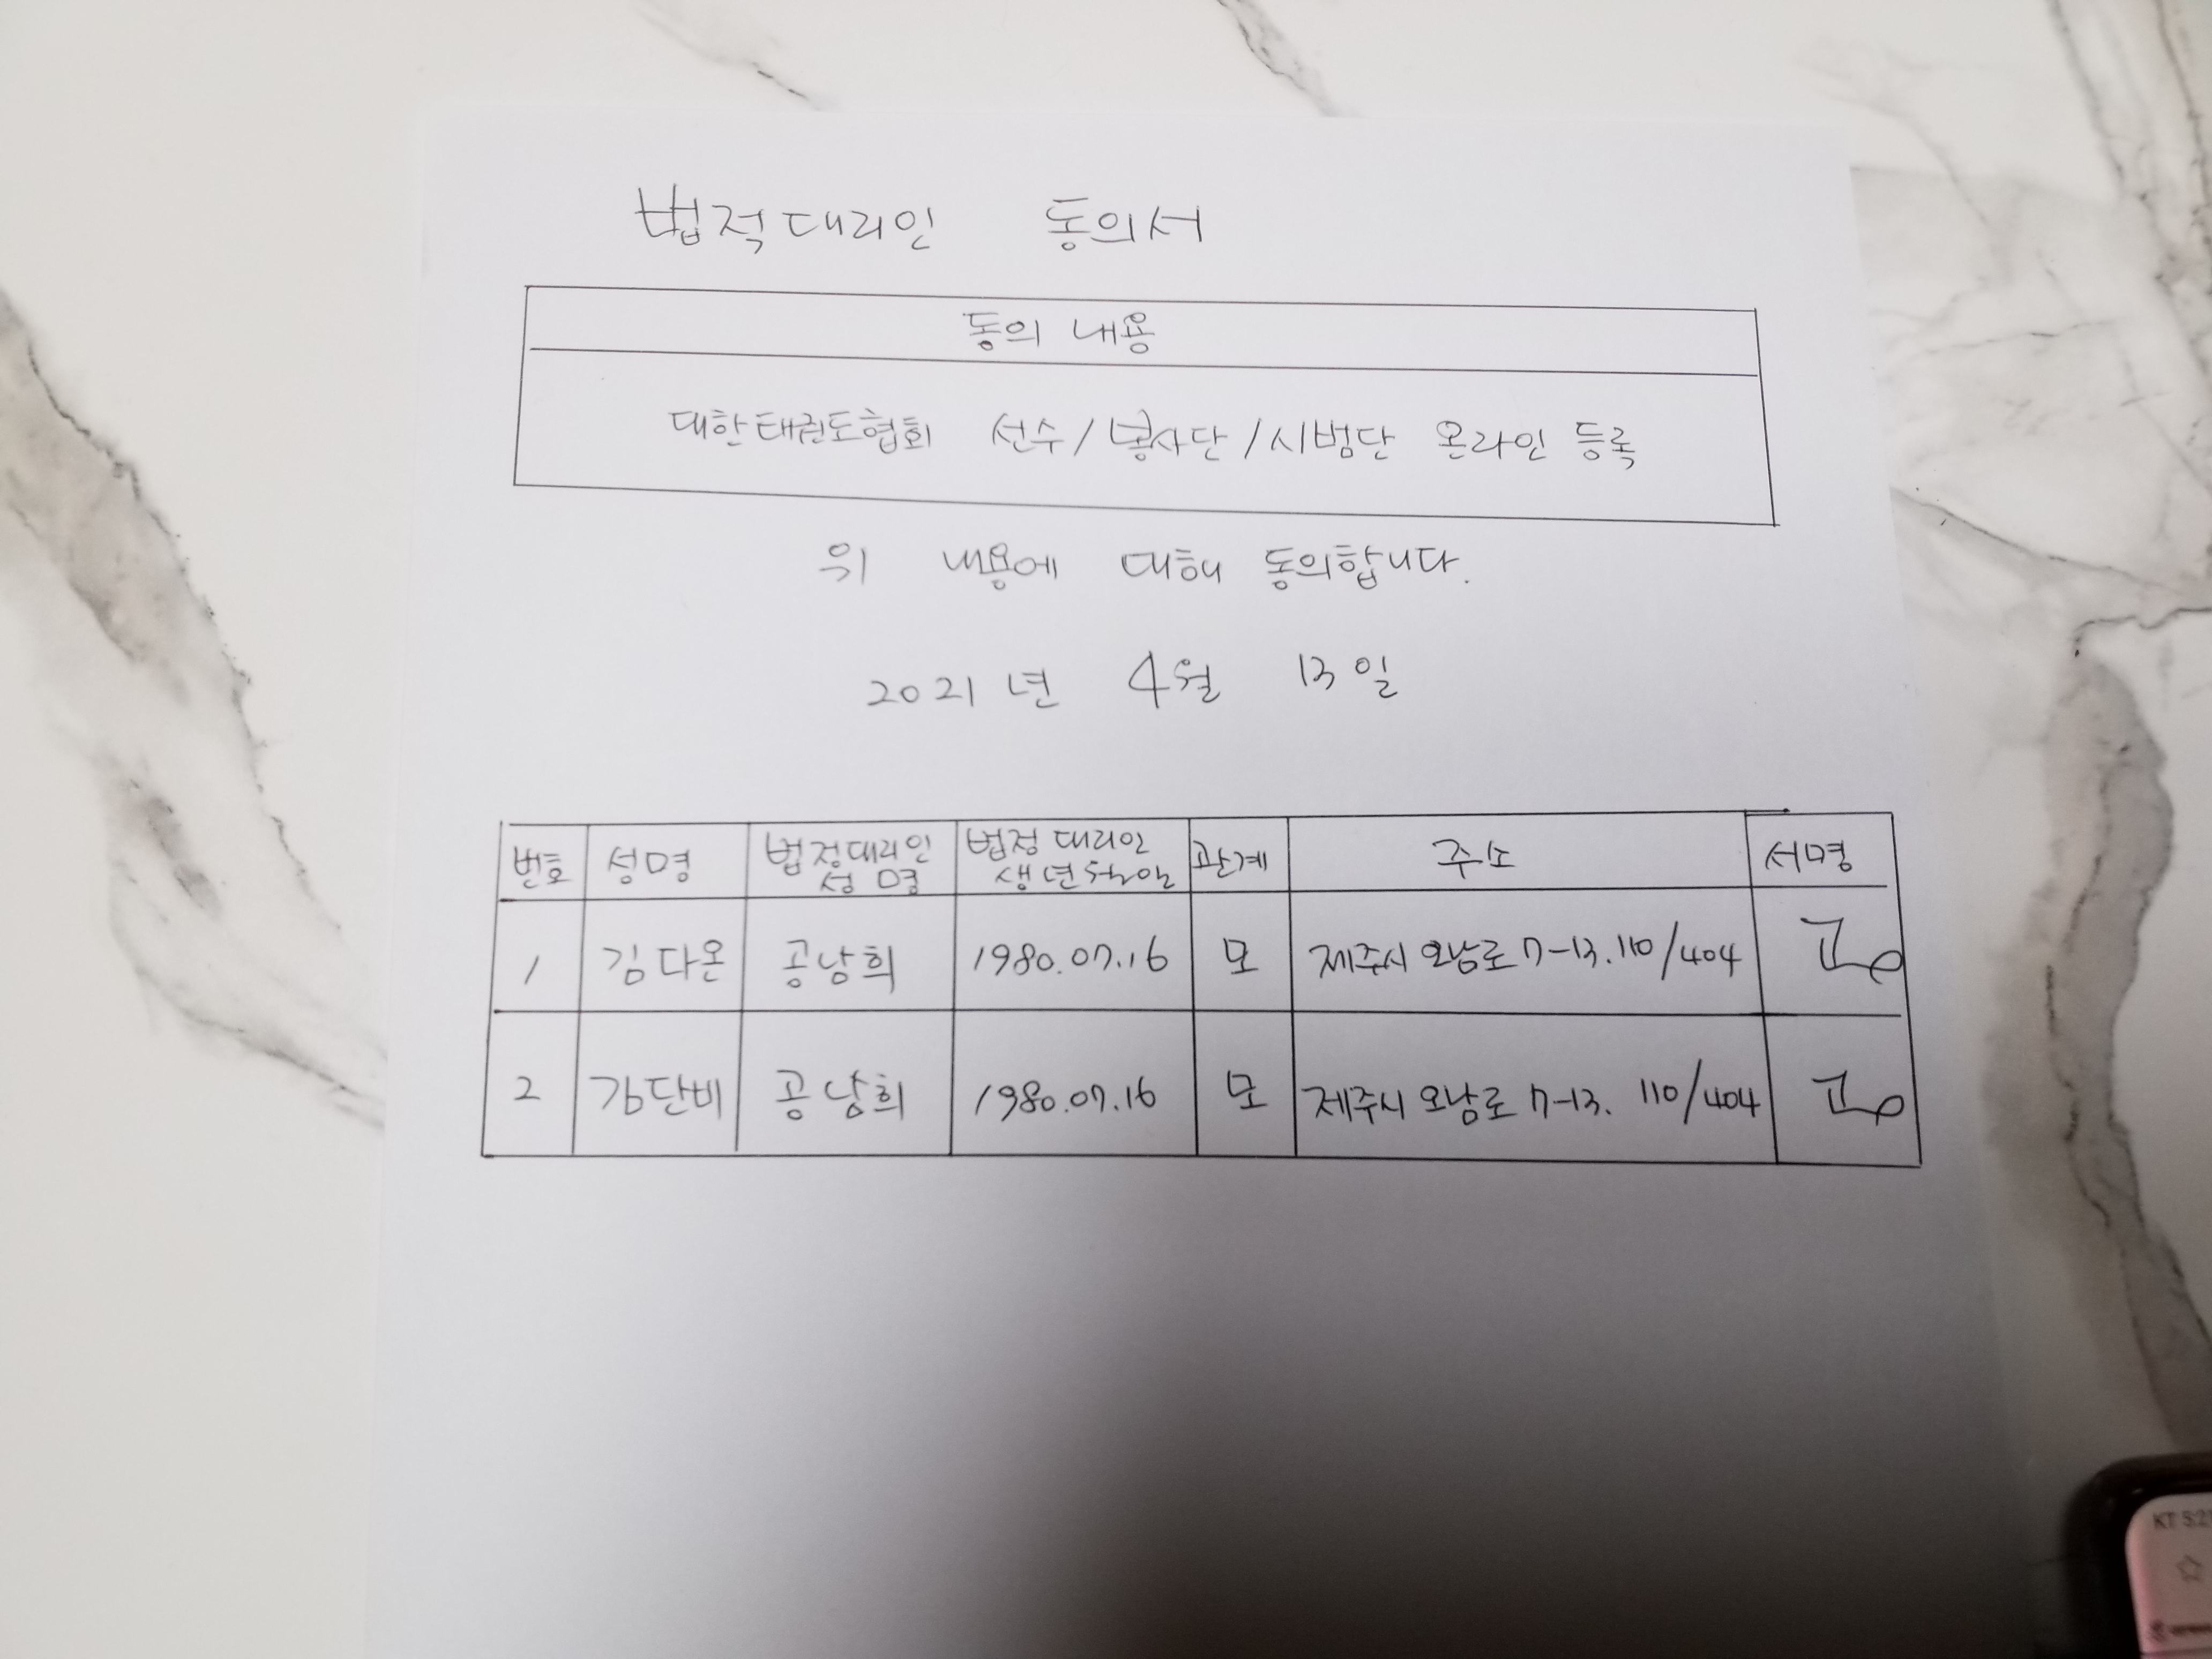 법적대리인 동의서
동의 내용
대한태권도협회 선수/봉사단/시범단 온라인 등록
위 내용에 대해 동의합니다.
2021년 4월 13일
번호 성명 법정대리인 성명 법정 대리인 생년월일 관계 주소 서명
1 김다온 공남희 1980.07.16 모 제주시 오남로 7-13. 110/404
2 김단비 공남희 1980.07.16 모 제주시 오남로 7-13. 110/404
KT 5:2